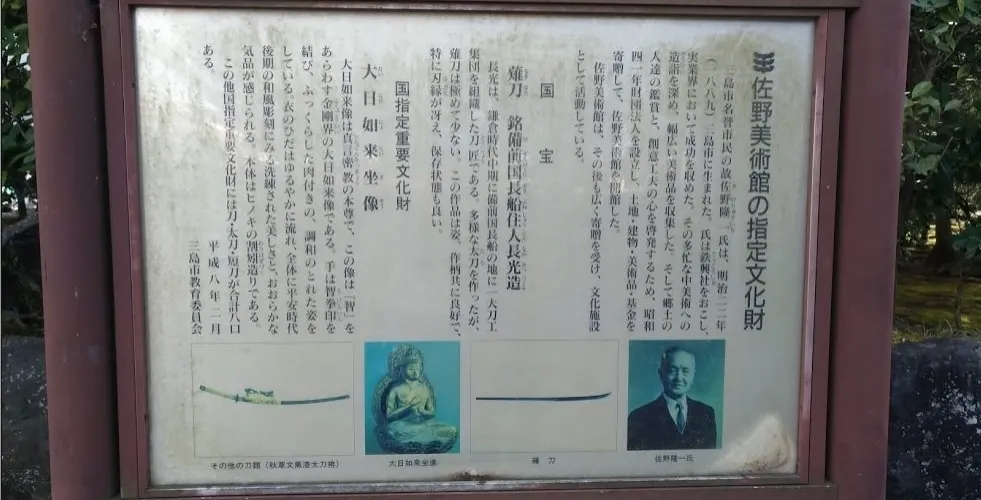 佐野美術館の指定文化財
三島市名誉市民の故佐野隆一氏は、明治二二年
(一八八九)三島市に生まれた。氏は鉄興社をおこし、
実業界において成功を収めた。その多忙な中美術への
造詣を深め、幅広い美術品を収集した。そして郷土の
人達の鑑賞と、創意工夫の心を啓発するため、昭和
四一年財団法人を設立し、土地・建物・美術品・基金を
寄贈して、佐野美術館を開館した。
佐野美術館は、その後も広く寄贈を受け、文化施設
として活動している。
国宝
薙刀 銘備前国長船住人長光造
長光は、鎌倉時代中期に備前国長船の地に一大刀工
集団を組織した刀匠である。多様な太刀を作ったが、
薙刀は極めて少ない。この作品は姿、作柄共に良好で、
特に刃縁が冴え、保存状態も良い。
国指定重要文化財
大日如来坐像
大日如来像は真言密教の本尊で、この像は「智」を
あらわす金剛界の大日如来像である。手は智拳印を
結び、ふっくらした肉付きの、調和のとれた姿を
している。衣のひだはゆるやかに流れ、全体に平安時代
後期の和風彫刻にみる洗練された美しさと、おおらかな
気品が感じられる。本体はヒノキの割矧造りである。
この他国指定重要文化財には刀・太刀・短刀が合計八口
ある。
平成八年二月
三島市教育委員会
佐野隆一氏
薙刀
大日如来坐像
その他の刀類(秋草文黒漆太刀拵)